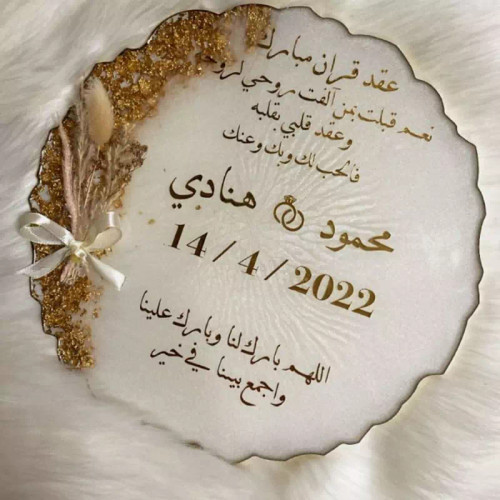 عقد قران مبارك
نعم قبلت بمن آلفت روحي لروحه
وعقد قلبي بقلبه
فالحب لك وبك وعنك
محمود هنادي
14 / 4 / 2022
اللهم بارك لنا وبارك علينا
واجمع بيننا في خير